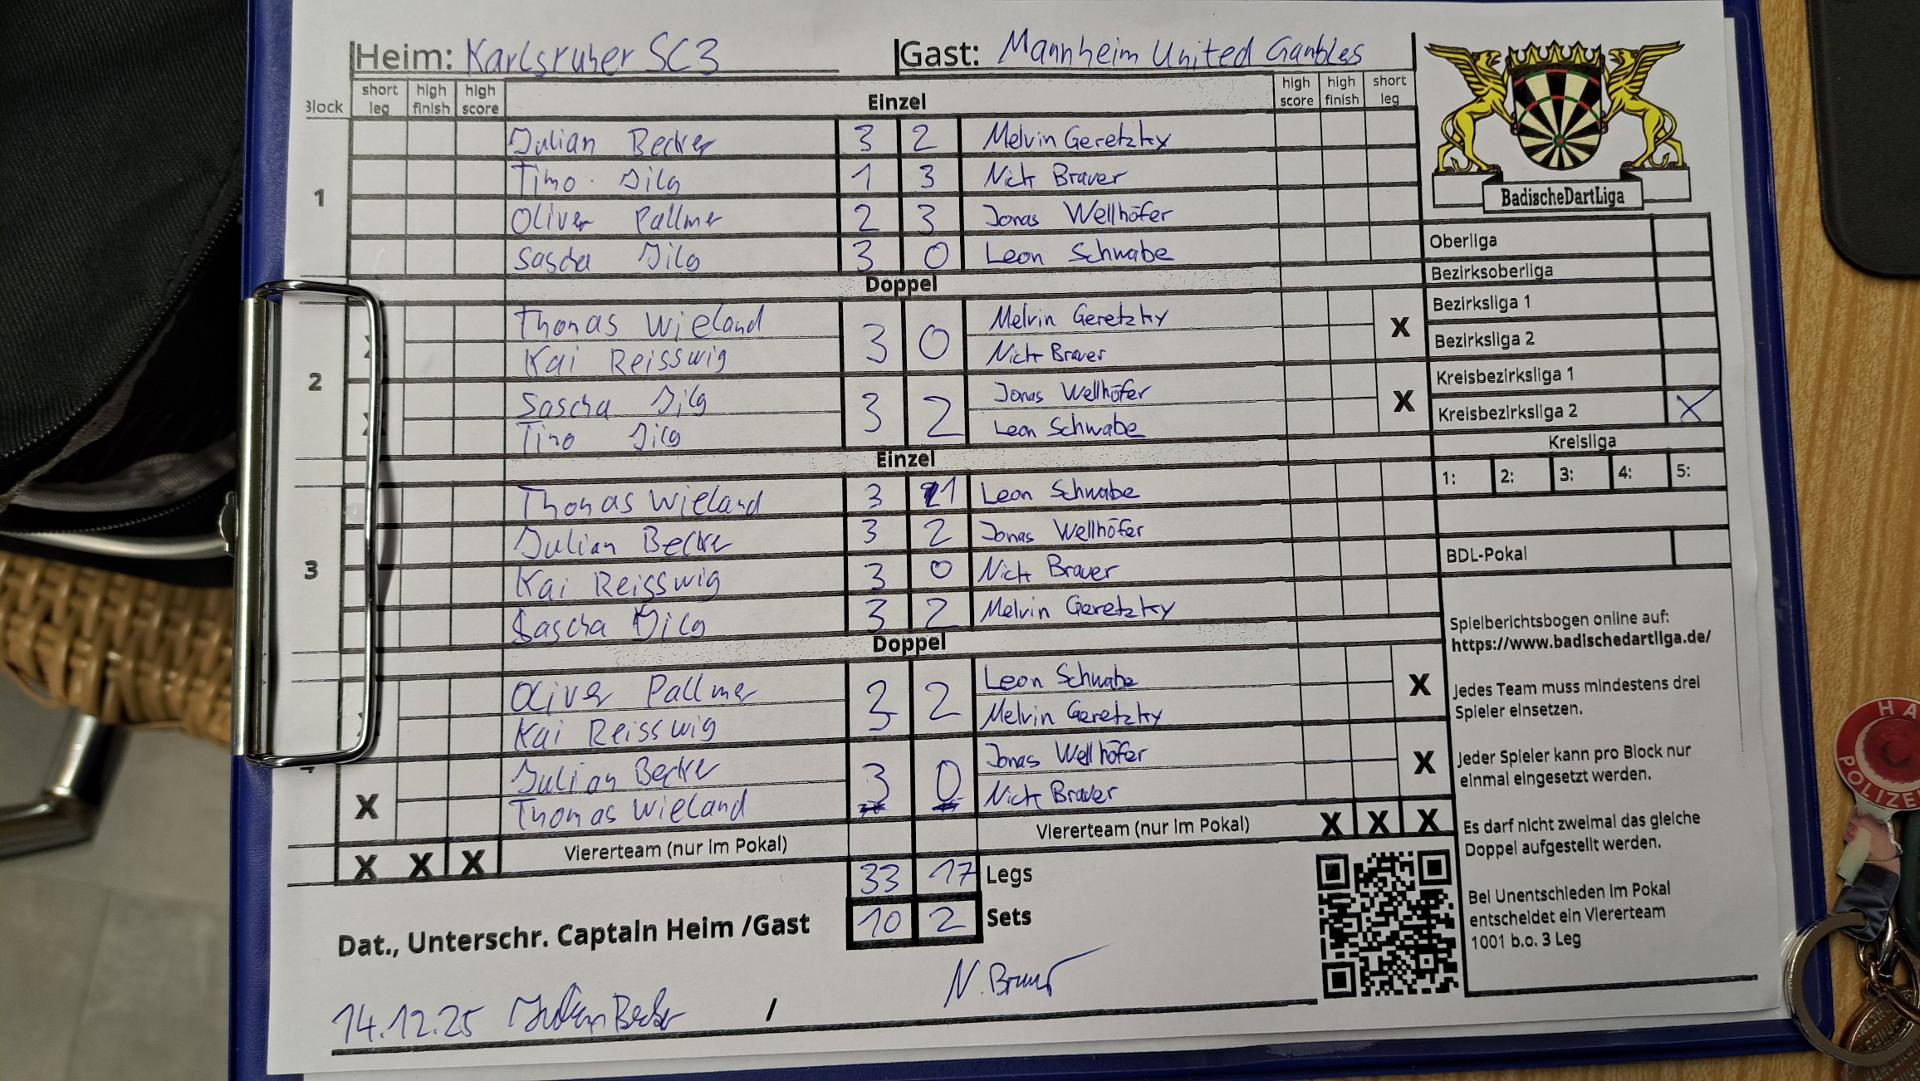 Heim: Karlsruher SC3 Gast: Mannheim United Gambles
Block short leg high finish high score Einzel high score high finish short leg
1
Julian Becker 3 2 Melvin Geretzky
Timo Jilg 1 3 Nick Brauer
Oliver Pallmer 2 3 Jonas Wellhöfer
Sascha Jilg 3 0 Leon Schwabe
Doppel
2
Thonas Wieland 3 0 Melvin Geretzky X
Kai Reisswig Nick Brauer
Sascha Jilg 3 2 Jonas Wellhöfer X
Timo Jilg Leon Schwabe
Einzel
3
Thonas Wieland 3 1 Leon Schwabe
Julian Becker 3 2 Jonas Wellhöfer
Kai Reisswig 3 0 Nick Brauer
Sascha Jilg 3 2 Melvin Geretzky
Doppel
Oliver Pallmer 3 2 Leon Schwabe X
Kai Reisswig Melvin Geretzky
Julian Becker 3 0 Jonas Wellhöfer X
X Thonas Wieland Nick Brauer
X X X Viererteam (nur im Pokal) Viererteam (nur im Pokal) X X X
33 17 Legs
10 2 Sets
Dat., Unterschr. Captain Heim /Gast
14.12.25 Julian Becker / N. Brauer
BadischeDartLiga
Oberliga
Bezirksoberliga
Bezirksliga 1
Bezirksliga 2
Kreisbezirksliga 1
Kreisbezirksliga 2 X
Kreisliga
1: 2: 3: 4: 5:
BDL-Pokal
Spielberichtsbogen online auf:
https://www.badischedartliga.de/
Jedes Team muss mindestens drei
Spieler einsetzen.
Jeder Spieler kann pro Block nur
einmal eingesetzt werden.
Es darf nicht zweimal das gleiche
Doppel aufgestellt werden.
Bei Unentschieden im Pokal
entscheidet ein Viererteam
1001 b.o. 3 Leg
HA
POLIZEI